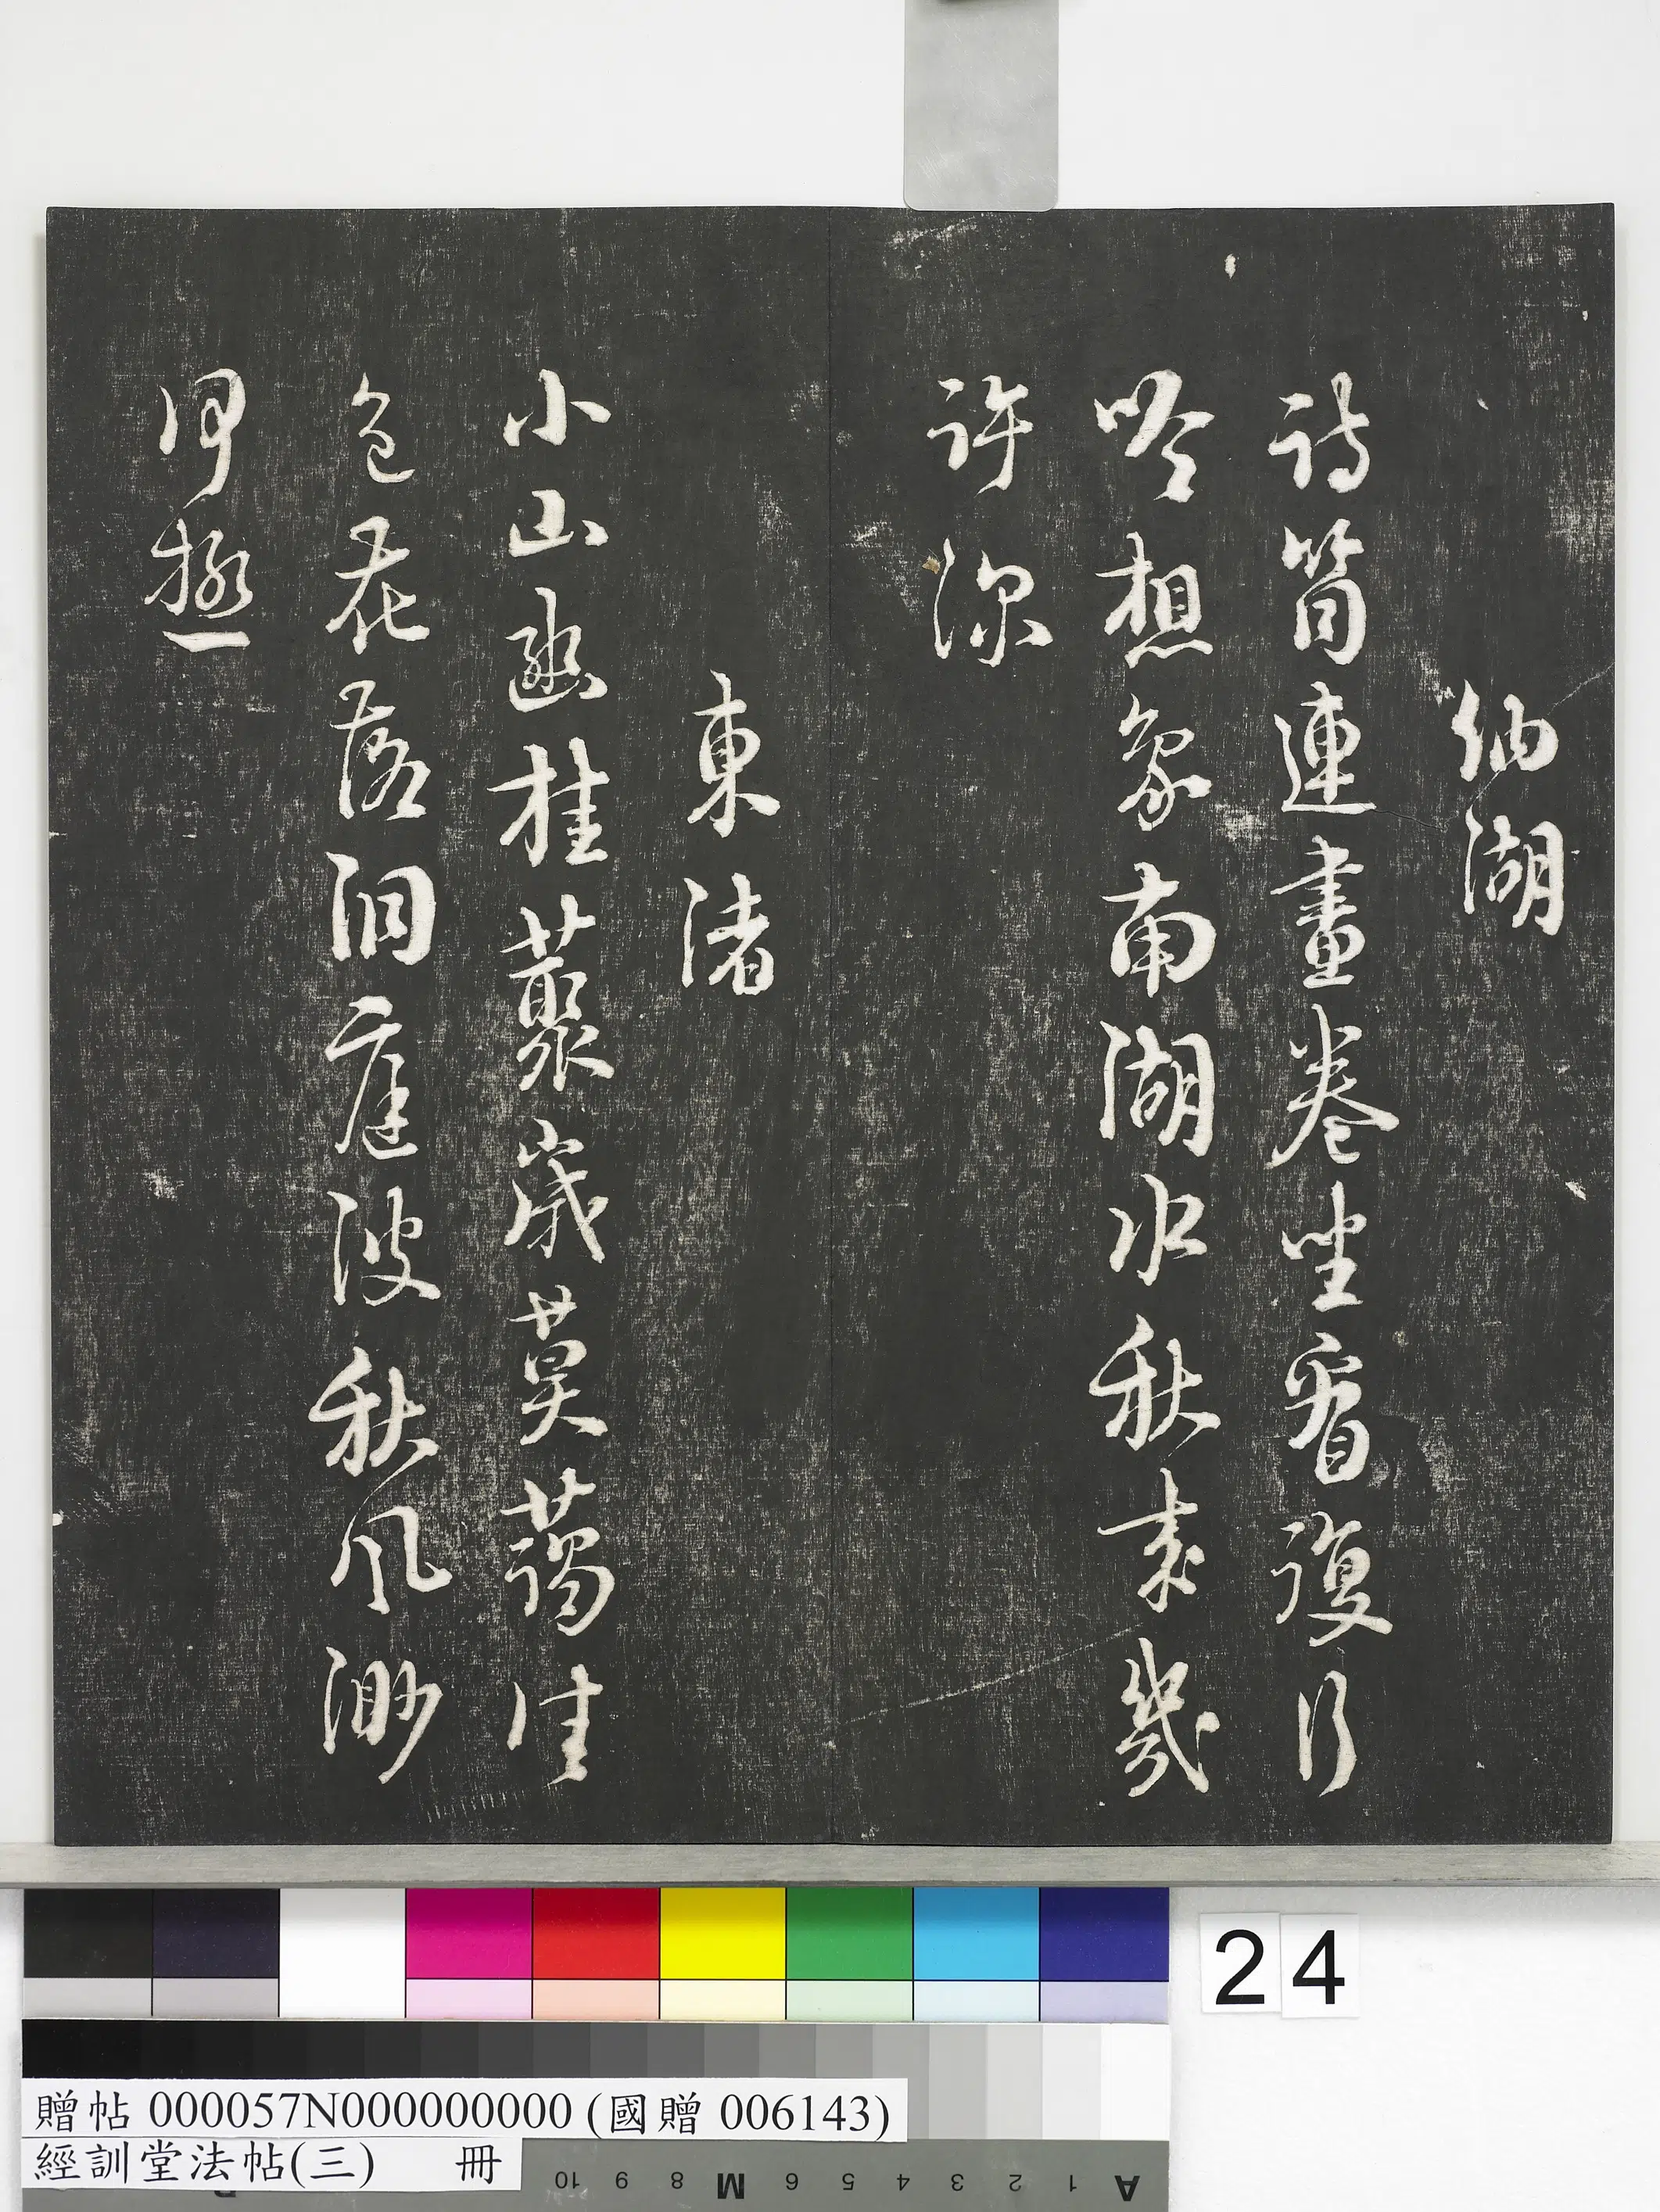 納湖
詩筒連畫卷坐看復行
吟想象南湖水秋來幾
許深
東渚
小山幽桂藂歲莫藹佳
色花落洞庭波秋風渺
何極
24
贈帖 000057N000000000 (國贈 006143)
經訓堂法帖(三) 冊
10 9 8 M 6 5 4 3 2 1 A